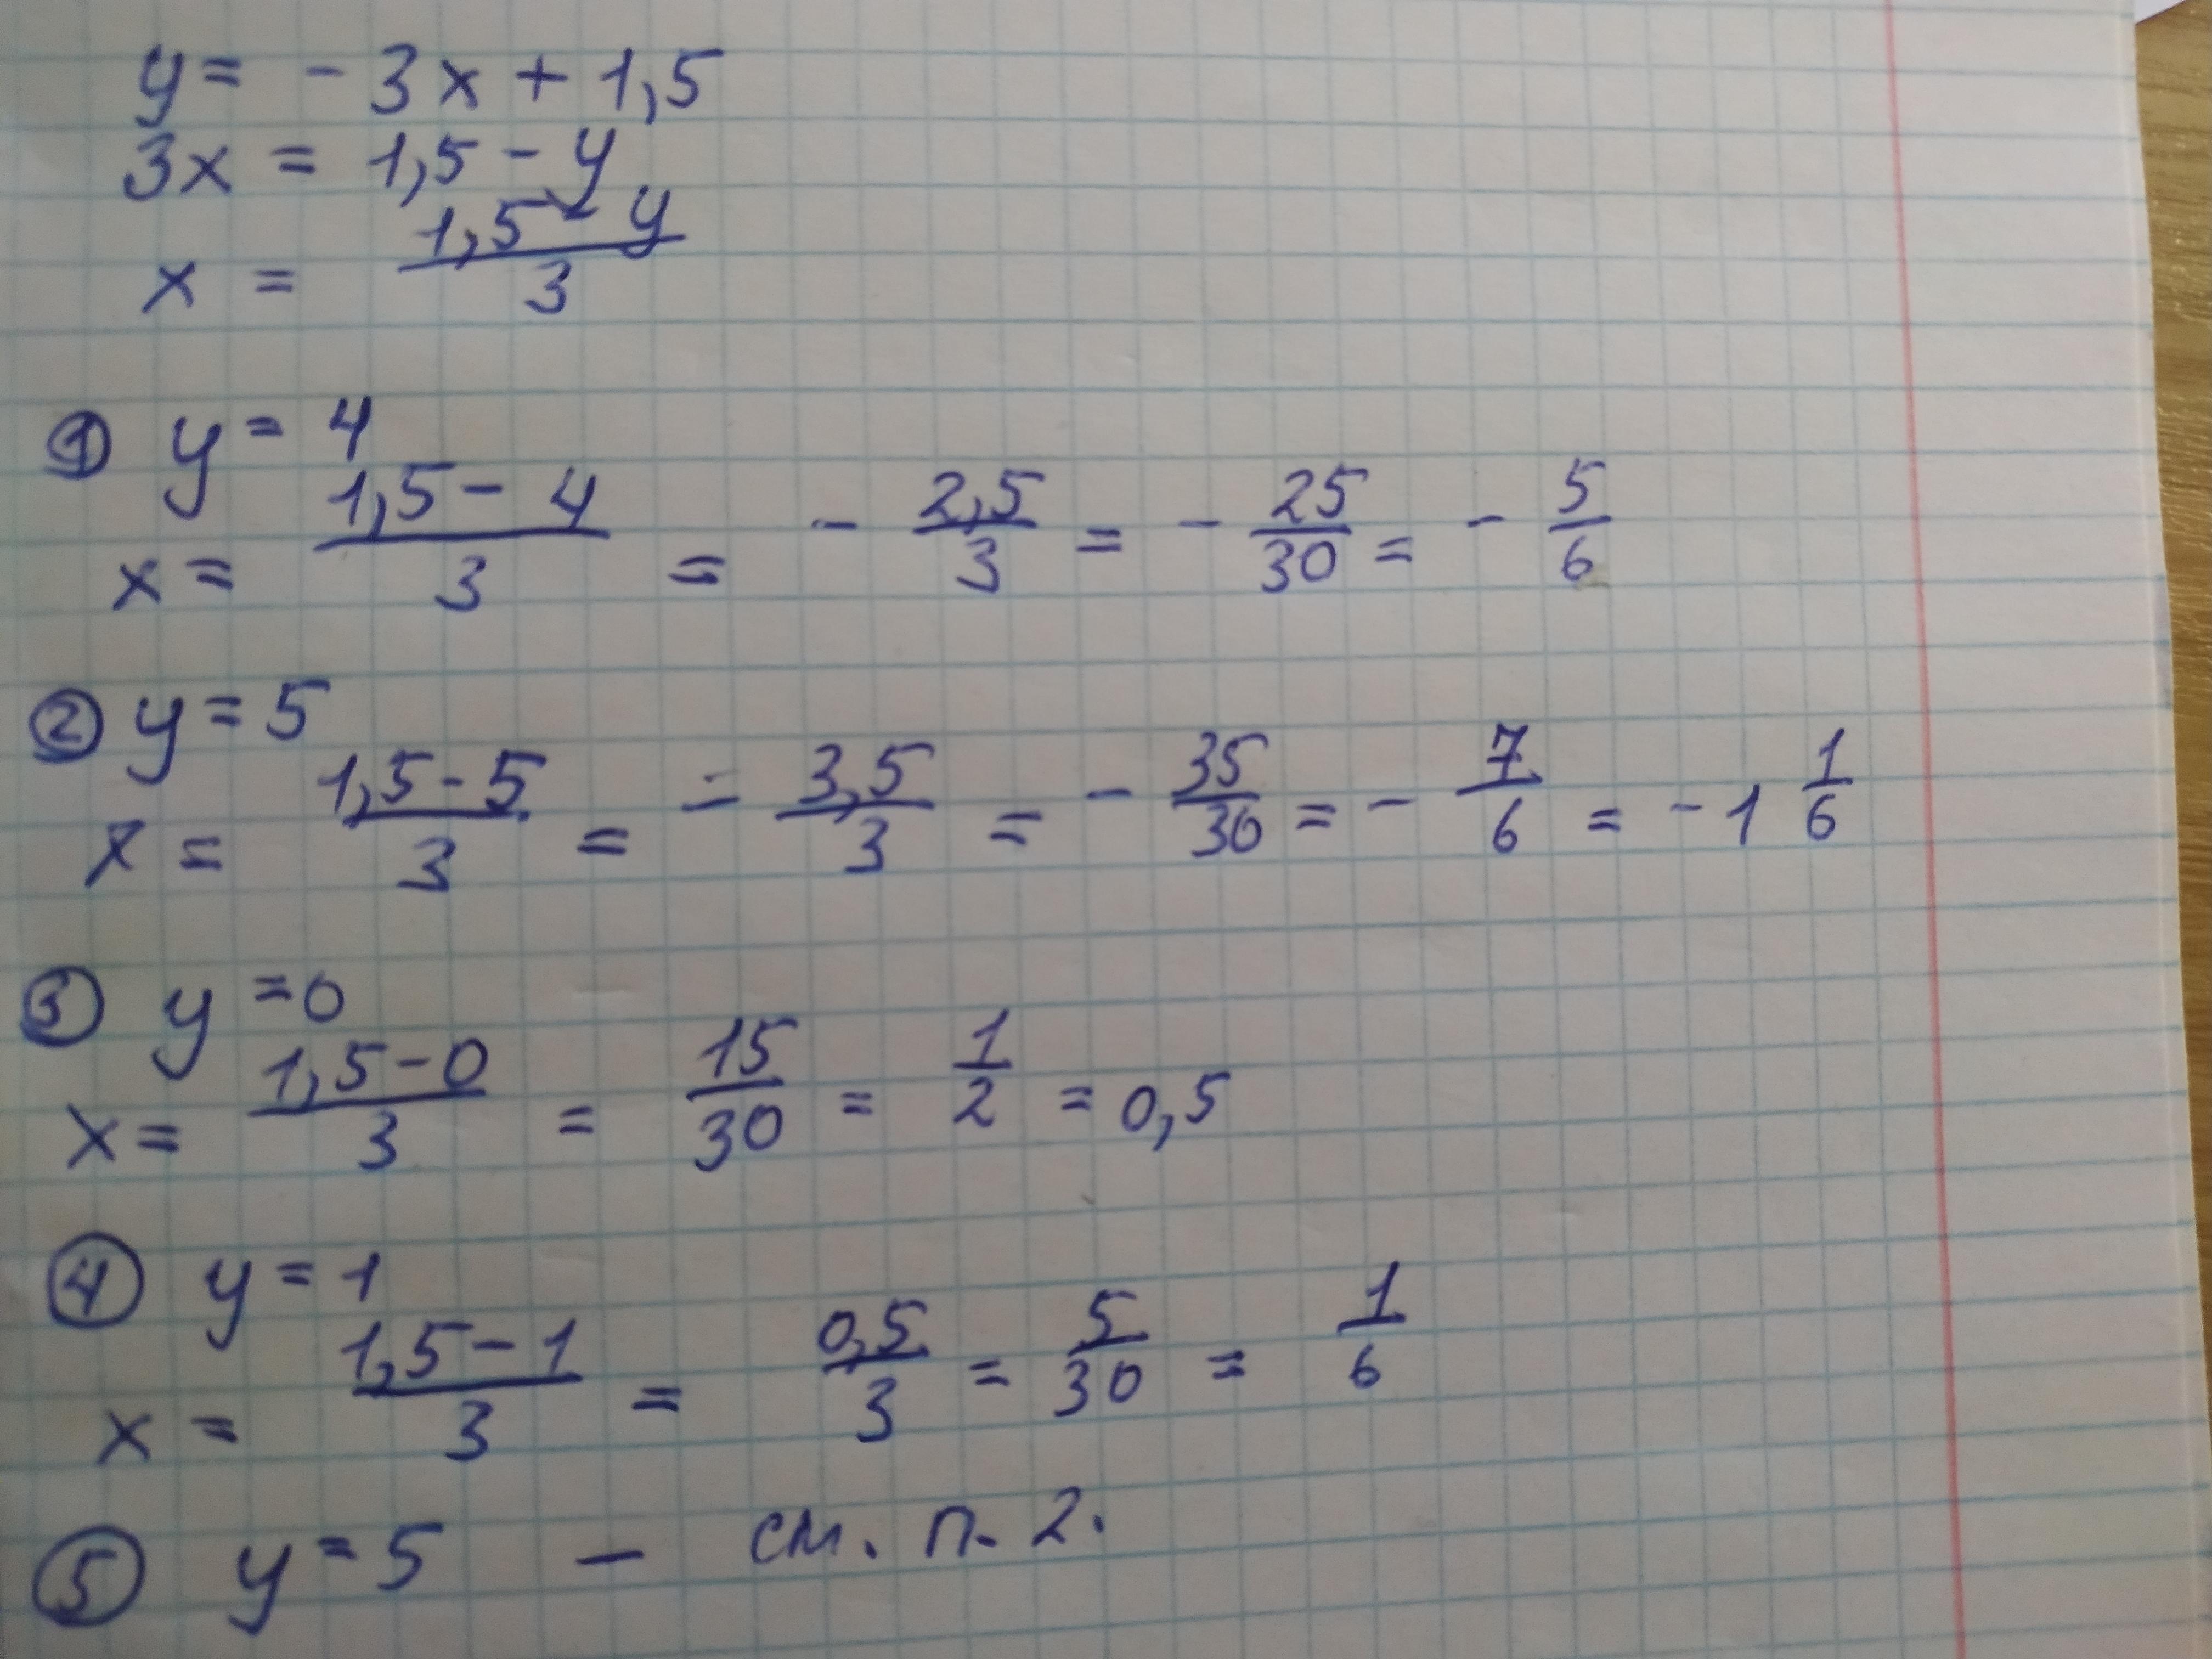 y = - 3x + 1,5
3x = 1,5 - y
x = (1,5 - y)/3
① y = 4
x = (1,5 - 4)/3 = - 2,5/3 = - 25/30 = - 5/6
② y = 5
x = (1,5 - 5)/3 = - 3,5/3 = - 35/30 = - 7/6 = - 1 1/6
③ y = 0
x = (1,5 - 0)/3 = 15/30 = 1/2 = 0,5
④ y = 1
x = (1,5 - 1)/3 = 0,5/3 = 5/30 = 1/6
⑤ y = 5 — см. п. 2.